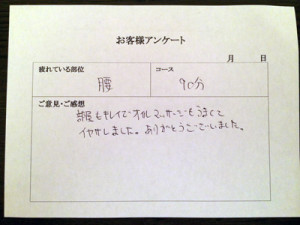 お客様アンケート
月 日
疲れている部位 コース
腰 90分
ご意見・ご感想
部屋もキレイでオイルマッサージもうまくて
イヤサレました。ありがとうございました。